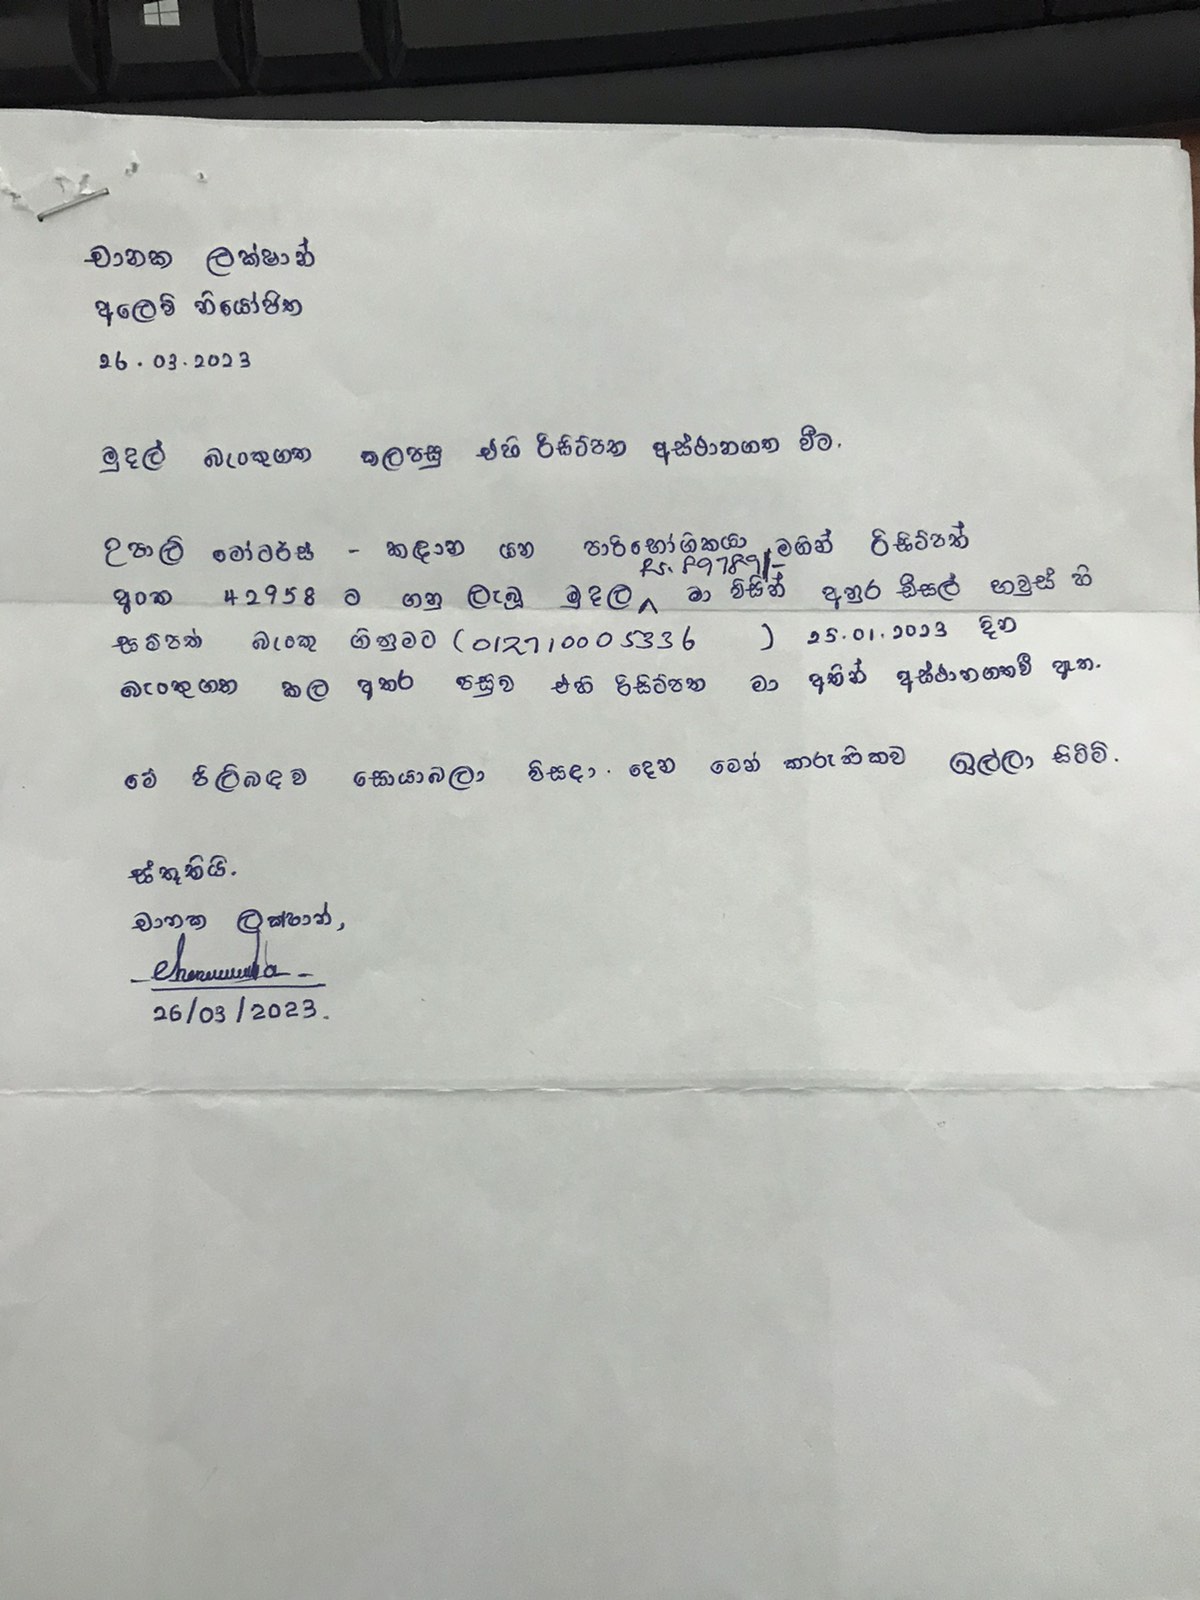 චානක ලක්ෂාන්
අලෙවි නියෝජිත
26.03.2023
මුදල් බැංකුගත කලපසු එහි රිසිට්පත අස්ථානගත වීම.
උපාලි මෝටර්ස් - කඳාන යන පාරිභෝගිකයා මගින් රිසිට්පත්
Rs. 89789/-
අංක 42958 ට ගනු ලැබූ මුදල ^ මා විසින් අනුර ඩීසල් හවුස් හි
සම්පත් බැංකු ගිනුමට (012710005336 ) 25.01.2023 දින
බැංකුගත කල අතර පසුව එහි රිසිට්පත මා අතින් අස්ථානගතවී ඇත.
මේ පිලිබඳව සොයාබලා විසඳා. දෙන මෙන් කාරුනිකව ඉල්ලා සිටිමි.
ස්තූතියි.
චානක ලක්ෂාන්,
26/03/2023.